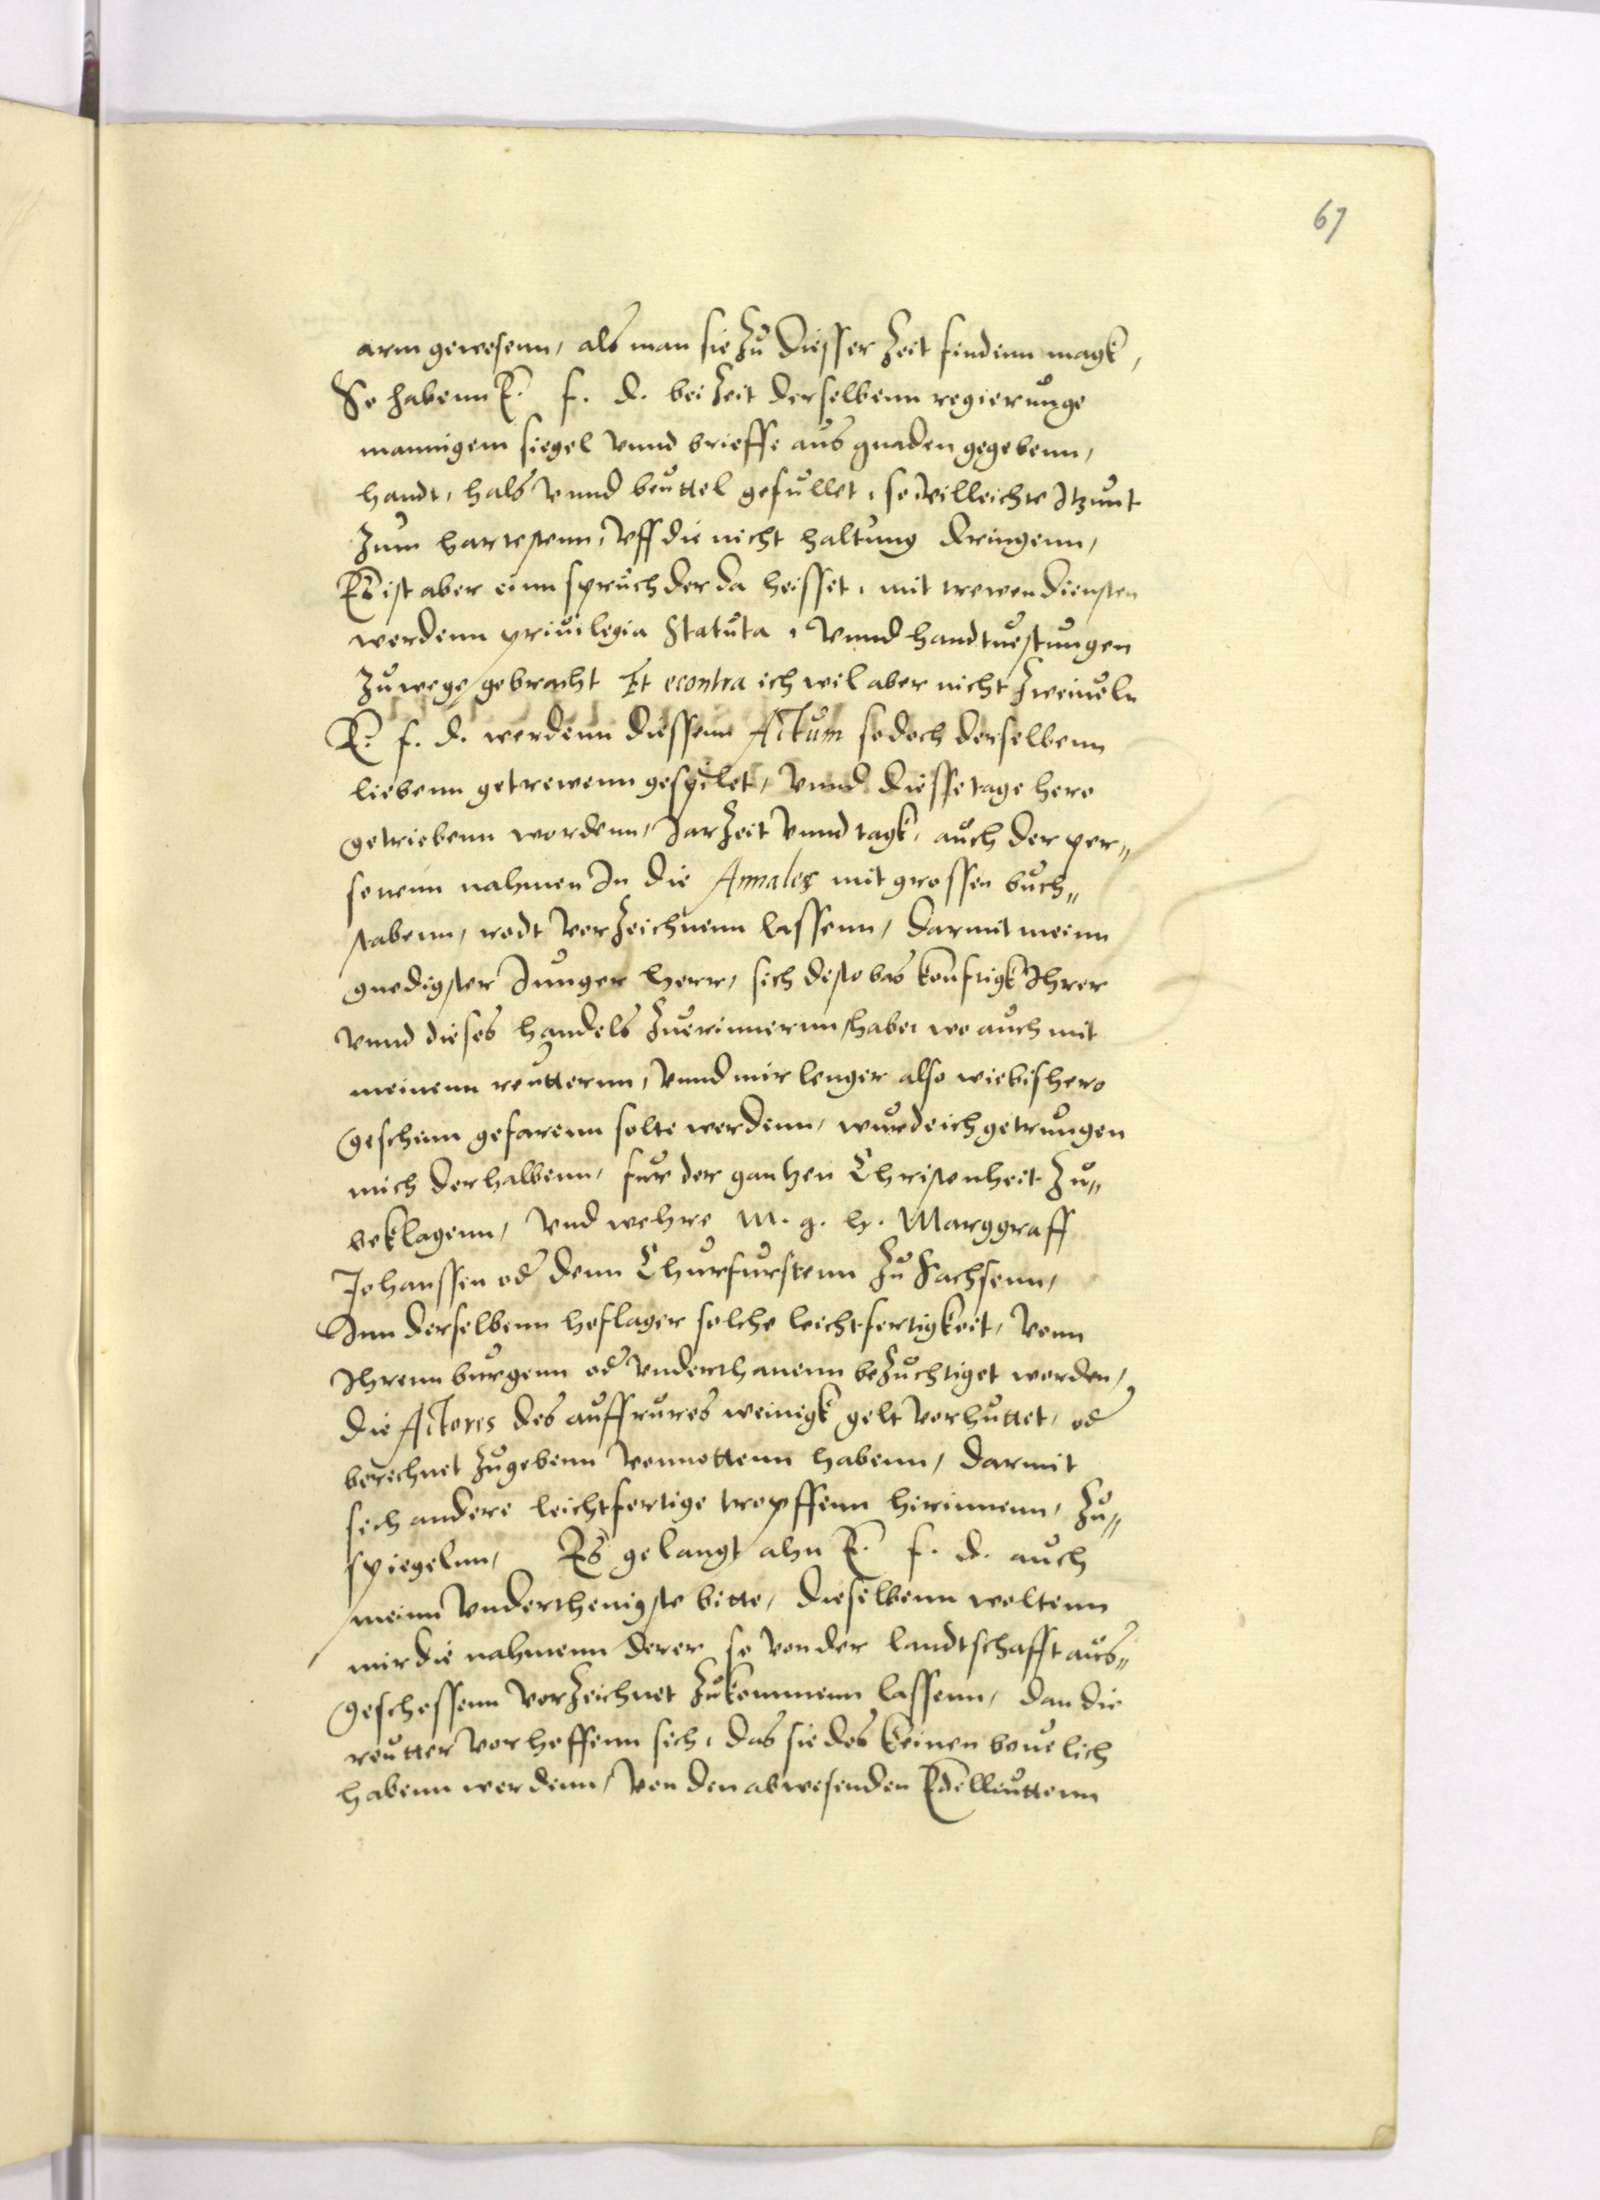 67
arm gewesenn, als man sie zu diesser zeit findenn magk,
So habenn E. f. d. bei zeit derselbenn regierunge
mannigem siegel vnnd brieffe aus gnaden gegebenn,
handt, hals vnnd beuttel gefullet, so villeichte Itzunt
zum hartestenn, vff die nicht haltung dringenn,
Es ist aber einn spruch der da heisset, mit trewen diensten
werdenn priuilegia Statuta, vnnd handtuestungen
zu wege gebracht Et econtra ich wil aber nicht zweiueln
E. f. d. werdenn diessenn Actum so doch derselbenn
liebenn getrewenn gespilet, vnnd diesse tage hero
getriebenn wordenn, Jarzeit vnnd tagk, auch der per„
sonenn nahmen In die Annales mit grossen buch„
stabenn, rodt verzeichnenn lassenn, darmit meinn
gnedigster Junger herr, sich desto bas konfftigk Ihrer
vnnd dieses handels zuerinnernn habe, wo auch mit
meinenn reutternn, vnnd mir lenger also wie bishero
geschenn gefarenn solte werdenn, wurde ich getrungen
mich derhalbenn, fur der gantzen Christenheit zu„
beklagenn, vnd wehre m. g. h. Marggraff
Johanssen od denn Churfurstenn zu Sachsenn,
Inn derselbenn hoflager solche leichtfertigkeit, vonn
Ihrenn burgenn od vnderthanenn bezuchtiget worden,
die Actores des auffrures weinigk gelt verhuttet, od
berechnet zugebenn vonnottenn habenn, darmit
sich andere leichtfertige tropffenn hirinnenn, zu„
spiegelnn, Es gelangt ahn E. f. d. auch
meinn vnderthenigste bitte, dieselbenn woltenn
mir die nahmenn derer so von der landtschafft aus„
geschossenn verzeichnet zukommenn lassenn, dan die
reutter verhoffenn sich, das sie des keinen
habenn werdenn, von den abwesenden Edelleuttenn